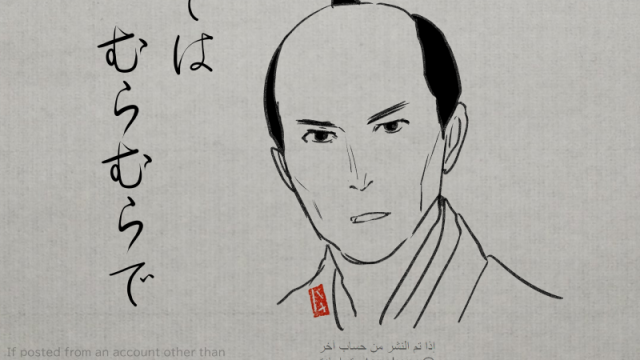 は
むらむらで
If posted from an account other than
اذا تم النشر من حساب آخر